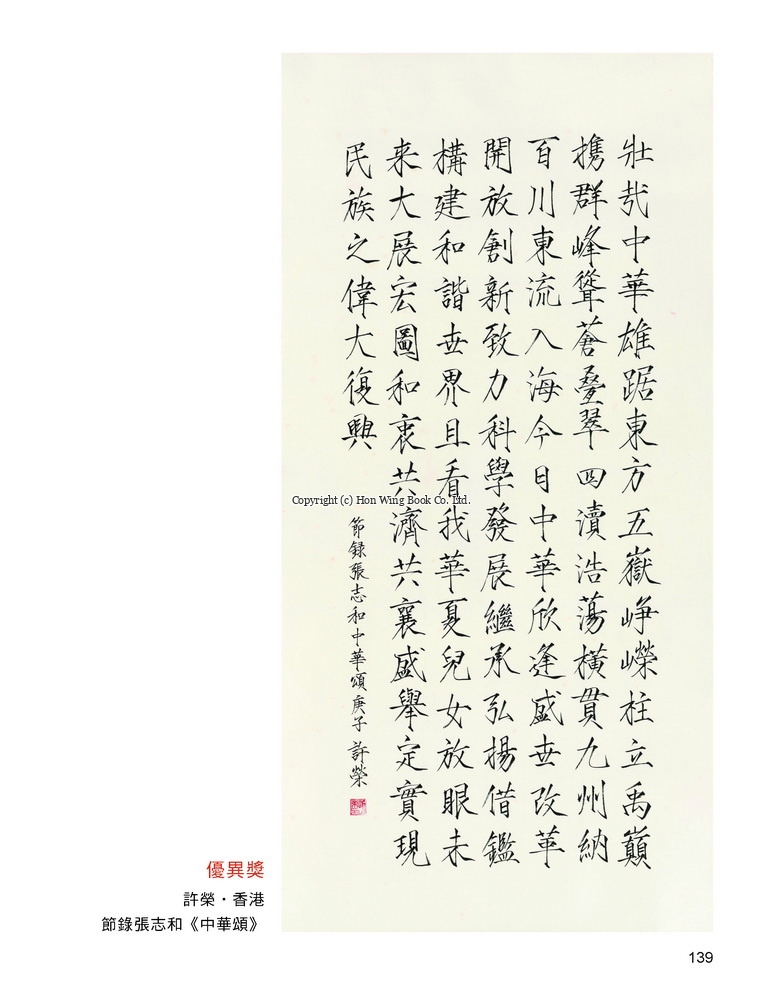 壯哉中華雄踞東方五嶽崢嶸柱立禹巔
携群峰聳蒼疊翠四瀆浩蕩橫貫九州納
百川東流入海今日中華欣逢盛世改革
開放創新致力科學發展繼承弘揚借鑑
構建和諧世界且看我華夏兒女放眼未
来大展宏圖和衷共濟共襄盛舉定實現
民族之偉大復興
節録張志和中華頌庚子 許榮
Copyright (c) Hon Wing Book Co. Ltd.
優異獎
許榮・香港
節錄張志和《中華頌》
139